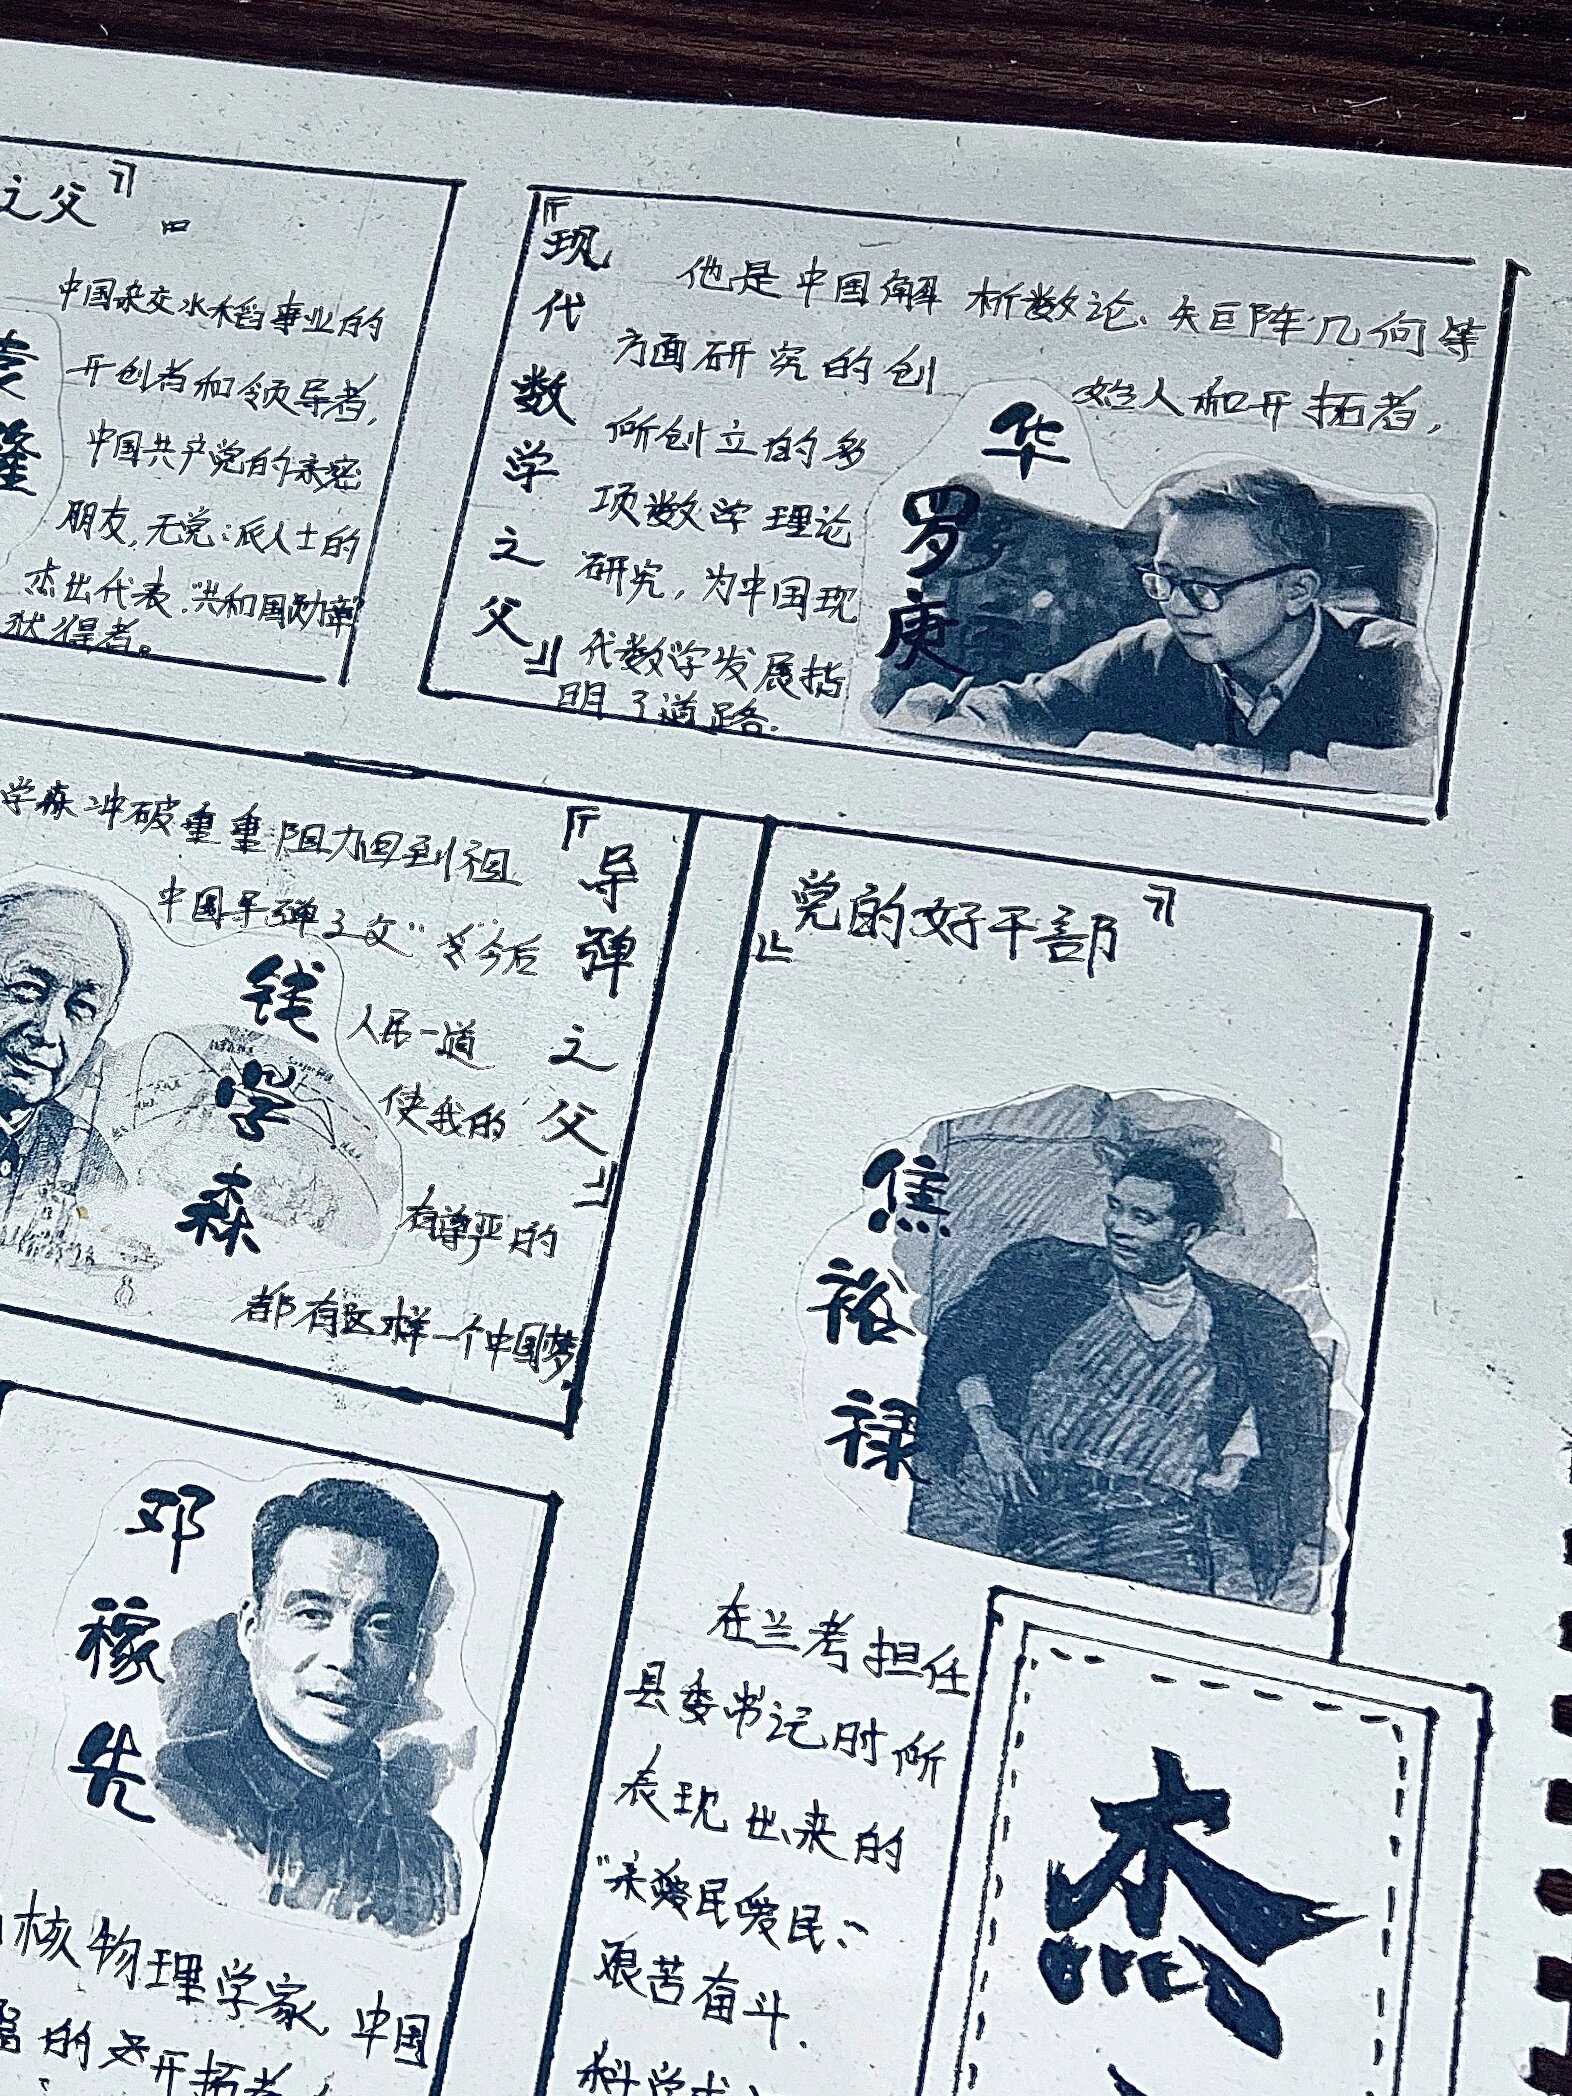 之父』
中国杂交水稻事业的
开创者和领导者,
中国共产党的亲密
朋友,无党派人士的
杰出代表.“共和国勋章”
获得者。
『现代数学之父』
他是中国解析数论、矩阵几何等
方面研究的创始人和开拓者,
所创立的多
项数学理论
研究,为中国现
代数学发展指
明了道路.
华罗庚
学森冲破重重阻力回到祖
中国导弹之父”
今后
人民一道
使我的
有尊严的
都有这样一个中国梦.
钱学森
『导弹之父』
党的好干部』
焦裕禄
在兰考担任
县委书记时所
表现出来的
“亲民爱民、
艰苦奋斗.
科学求
邓稼先
核物理学家,中国
的开拓者
杰